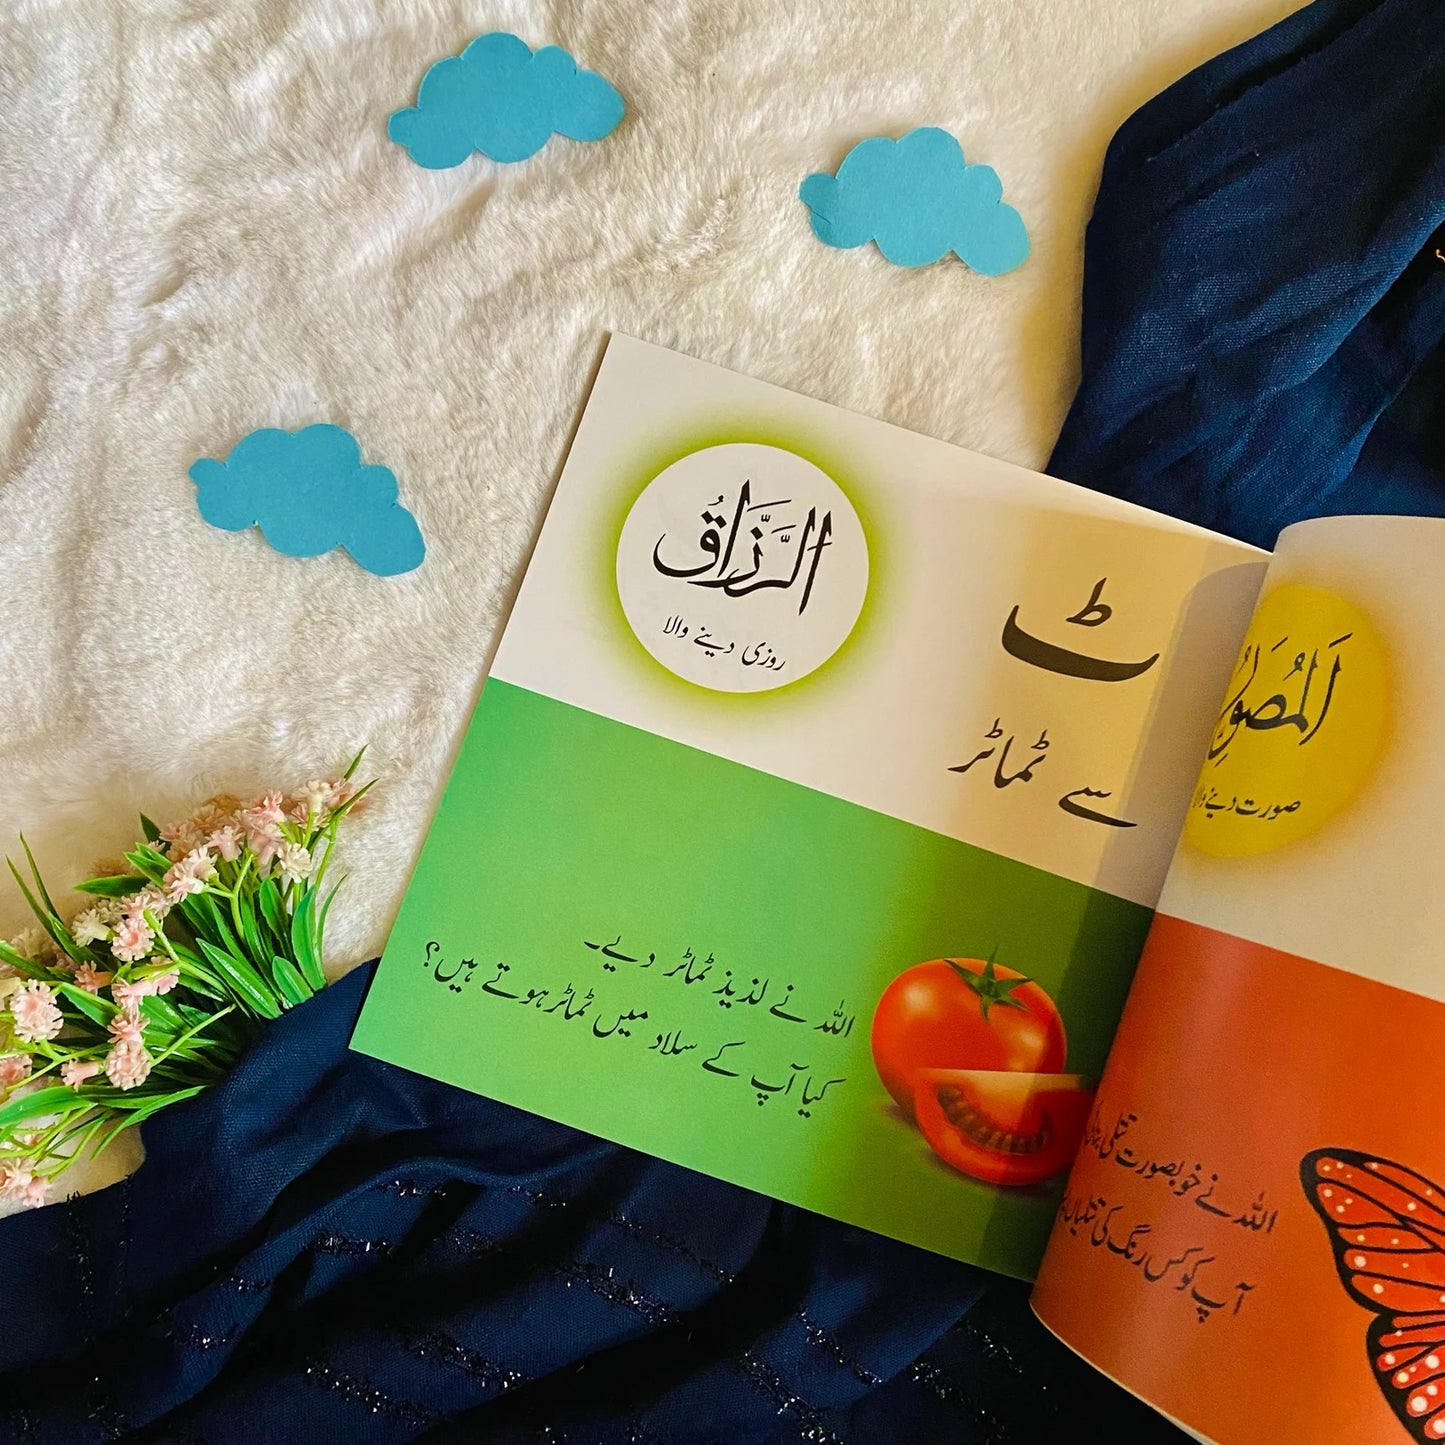 الرَّزَّاقُ
روزی دینے والا
ٹ
سے ٹماٹر
اللہ نے لذیذ ٹماٹر دیے۔
کیا آپ کے سلاد میں ٹماٹر ہوتے ہیں؟
اَلمُصَوِّرُ
صورت دینے والا
اللہ نے خوبصورت تتلی
آپ کو کس رنگ کی تتلیاں